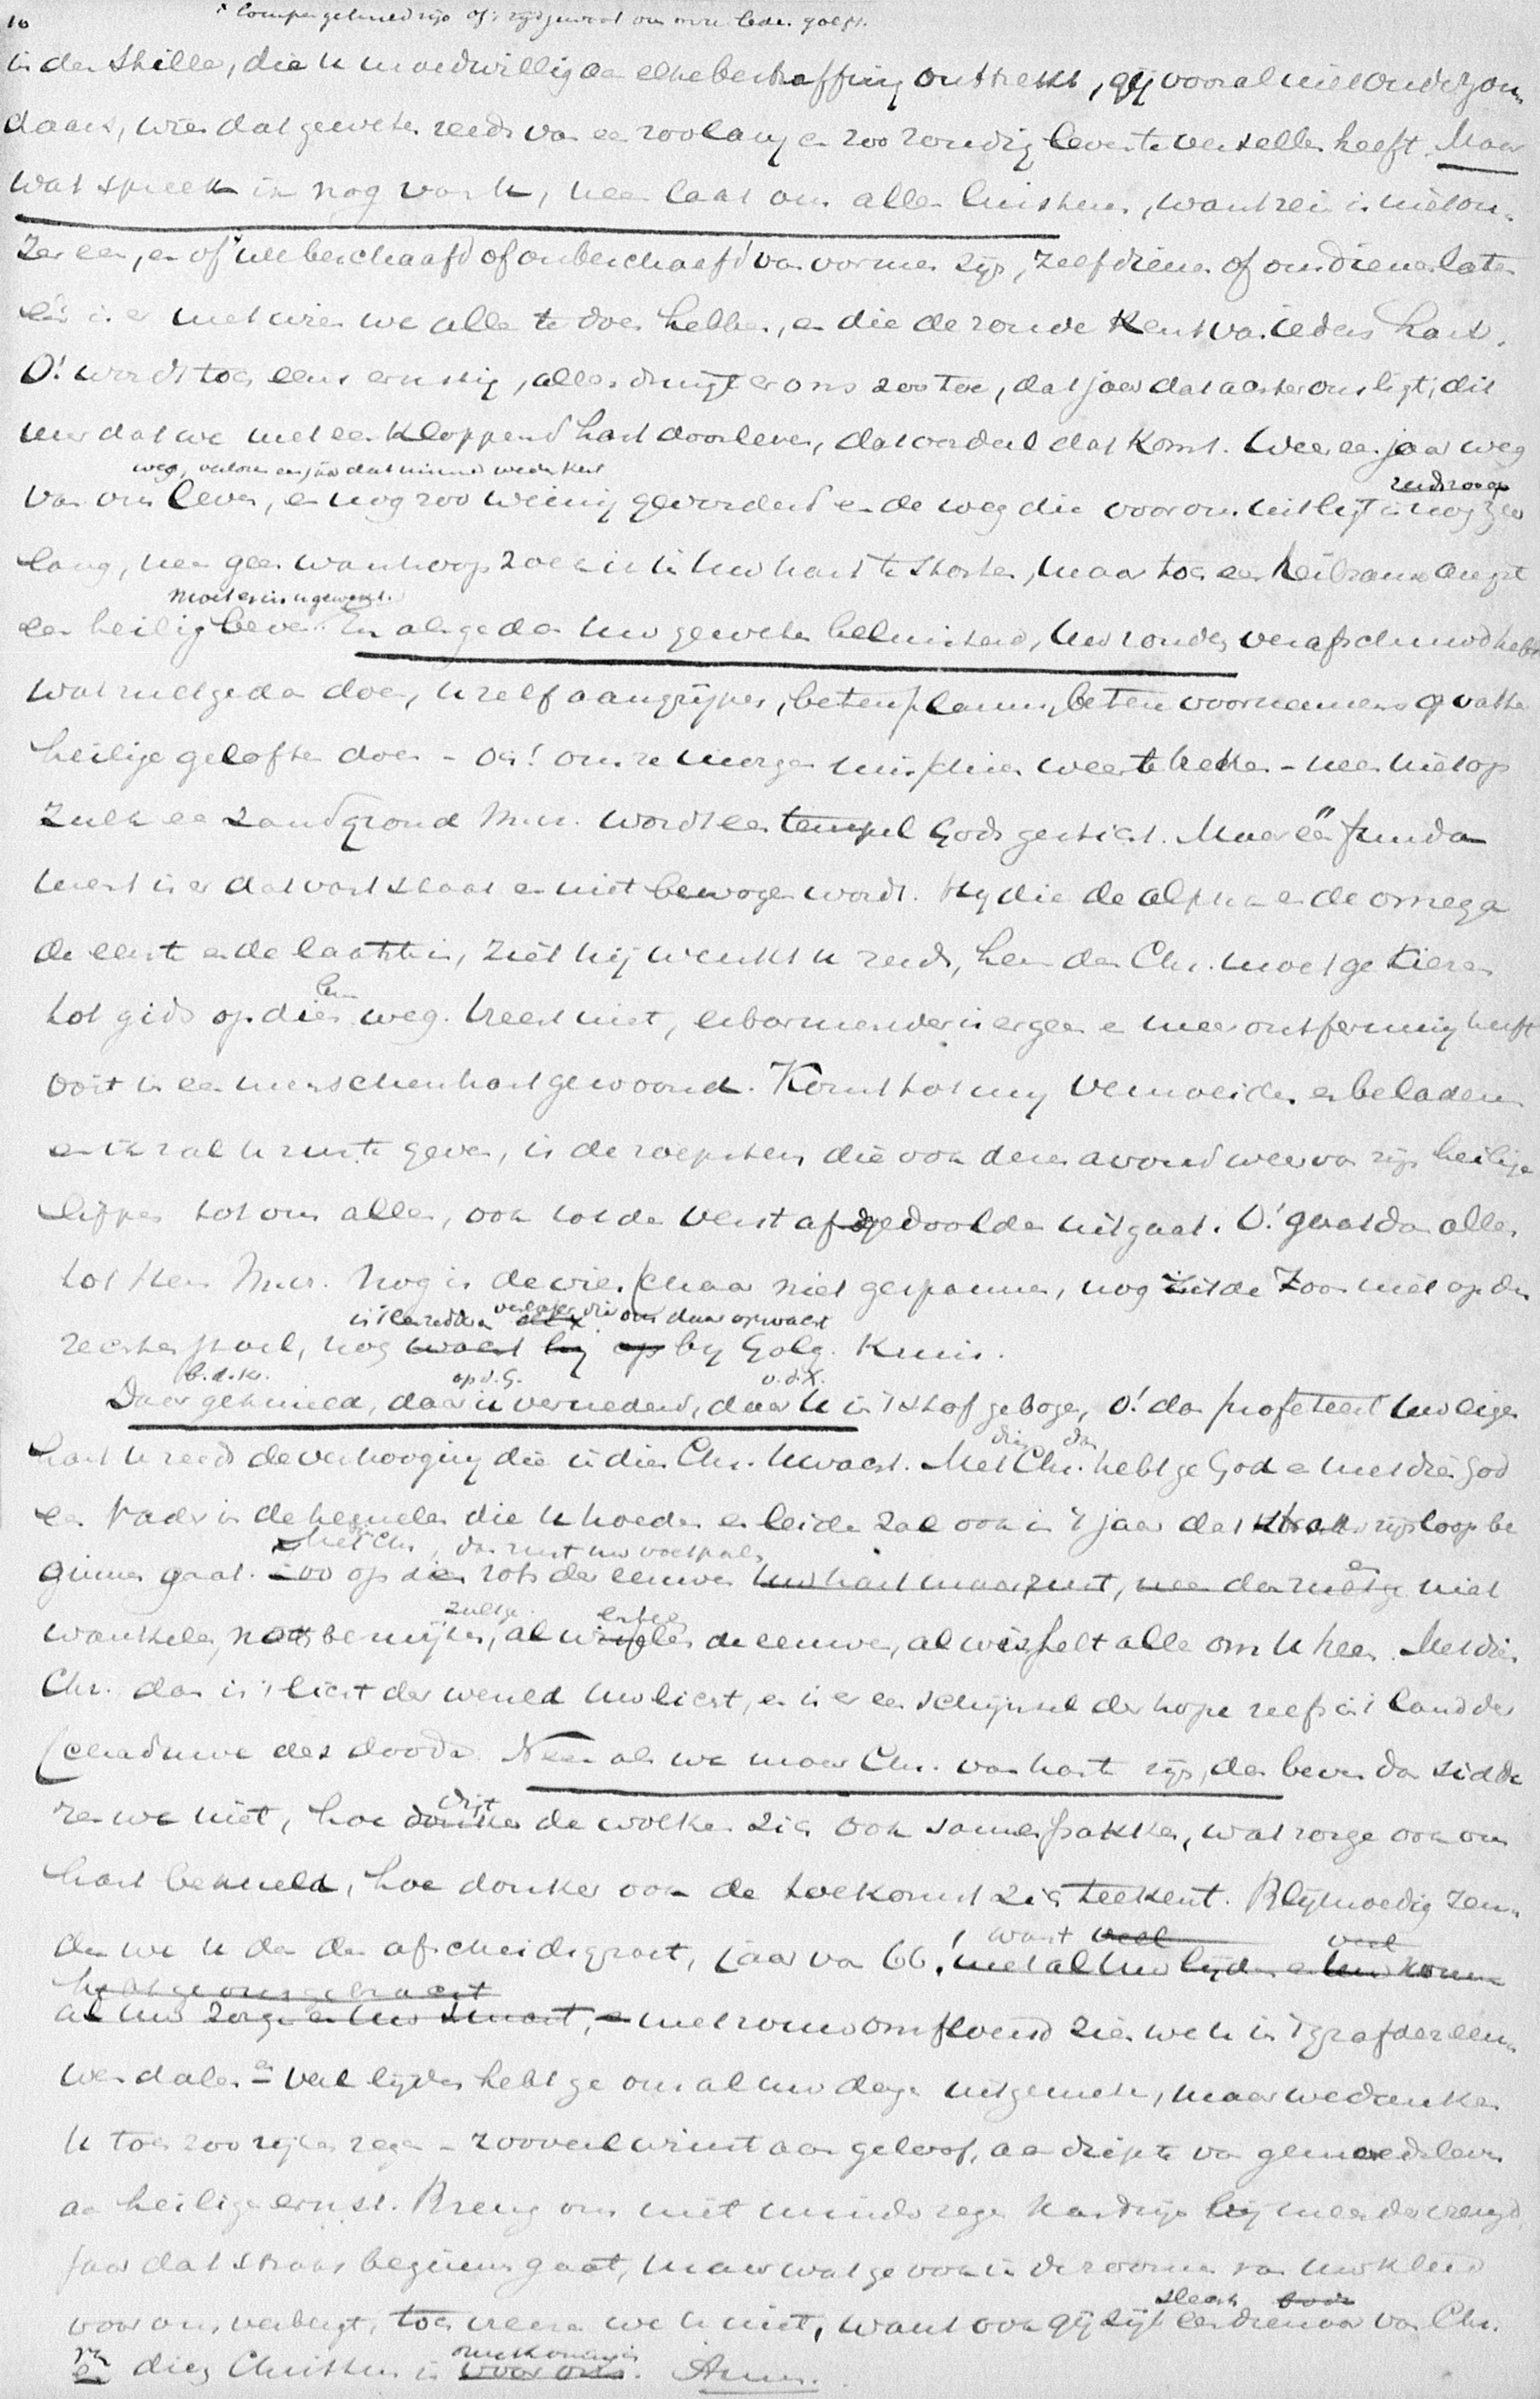 10
in der stille, die u moedwillig aan elke bestraffing onttrekt, gij vooral niet ouderzon-
daars, wien dat geweten reeds van een zoolang en zoo zondig leven te vertellen heeft. Maar
wat spreek ik nog van u, neen laat ons allen luisteren, want rein is niet on-
zer een, en of we beschaafd of onbeschaafd van vormen zijn, zelf dienen of ons dienen laten
één is er met wien we allen te doen hebben, en die de zonde kent van ieders hart.
O! wordt toch eens ernstig, alles dringt er ons zoo toe, dat jaar dat achter ons ligt, dit
uur dat we met een kloppend hart doorleven, dat oordeel dat komt. Weer een jaar weg
weg, verloren een jaar dat nimmer wederkeert
van ons leven, en nog zoo weinig gevorderd en de weg die voor ons uitligt is nog zoo
lang, neen geen wanhoop zoek ik in uw hart te storten, maar toch een heilzame angst
moet er in u gewerkt.
een heilig beven. En als ge dan uw geweten beluisterd, uw zonden verafschuwd hebt
wat zult ge dan doen, u zelf aangrijpen, betere plannen, betere voornemens opvatten
heilige geloften doen - och! om ze morgen misschien weer te breken - neen niet op
zulk een zandgrond M.vr. wordt een tempel Gods gesticht. Maar één funda-
ment is er dat vast staat en niet bewogen wordt. Hij die de alpha en de omega
de eerste en de laatste is, ziet hij wenkt u reeds, hem den Chr. moet ge kiezen
tot gids op dien weg. Vreest niet, erbarmender is er geen en meer ontferming heeft
ooit in een menschenhart gewoond. Komt tot mij vermoeiden en beladenen
en ik zal u ruste geven, is de roepstem die ook dezen avond weer van zijn heilige
lippen tot ons allen, ook tot den verst afgedoolden uitgaat. O! gaat dan allen
tot Hem M.vr. Nog is de vierschaar niet gespannen, nog zit de Zoon niet op den
is 't een redder die ons daar opwacht
rechterstoel, nog wacht hij op bij Golg. Kruis.
b.d.kr. op d. G. v.d.X.
Daar geknield, daar u vernederd, daar u in 't stof gebogen, o! dan profeteert uw eigen
hart u reeds de verhooging die in dien Chr. u wacht. Met Chr. hebt ge God en met dien God
een Vader in de hemelen die u hoeden en leiden zal ook in 't jaar dat straks zijn loop be-
Met Chr., dan rust uw voet pal
ginnen gaat. Zoo op dien rots der eeuwen uw hart maar rust, neen dan zult ge niet
zult ge
wankelen, noch bezwijken, al wisselen de eeuwen, al wisselt alles om u heen. Met dien
Chr. dan is 't licht der wereld uw licht, en is er een schijnsel der hope zelfs in 't land der
schaduwe des doods. Neen als we maar Chr. van harte zijn, dan beven dan sidde-
ren we niet, hoe donker de wolken zich ook samenpakken, wat zorge ook ons
hart beknelt, hoe donker ook de toekomst zich teekent. Blijmoedig zen-
want veel veel
den we u dan den afscheidsgroet, jaar van 66! met al uw lijden en uw
hebt ge ons gebracht
al uw zorge en uw smart, en met rouw omfloersd zien we u in 't graf der eeu-
wen dalen - veel lijden hebt ge ons al uw dagen uitgemeten, maar we danken
u toch zoo rijken zegen - zooveel winst aan geloof, aan diepte van gemoedsleven
aan heiligen ernst. Breng ons niet minder zegen en bij meerder vreugd,
jaar dat straks beginnen gaat, maar wat ge ook in de zoomen van uw kleed
slechts
voor ons verbergt, toch vreezen we u niet, want ook gij zijt een dienaar van Chr.
onze Koning is
en dien Christus is voor ons. Amen.